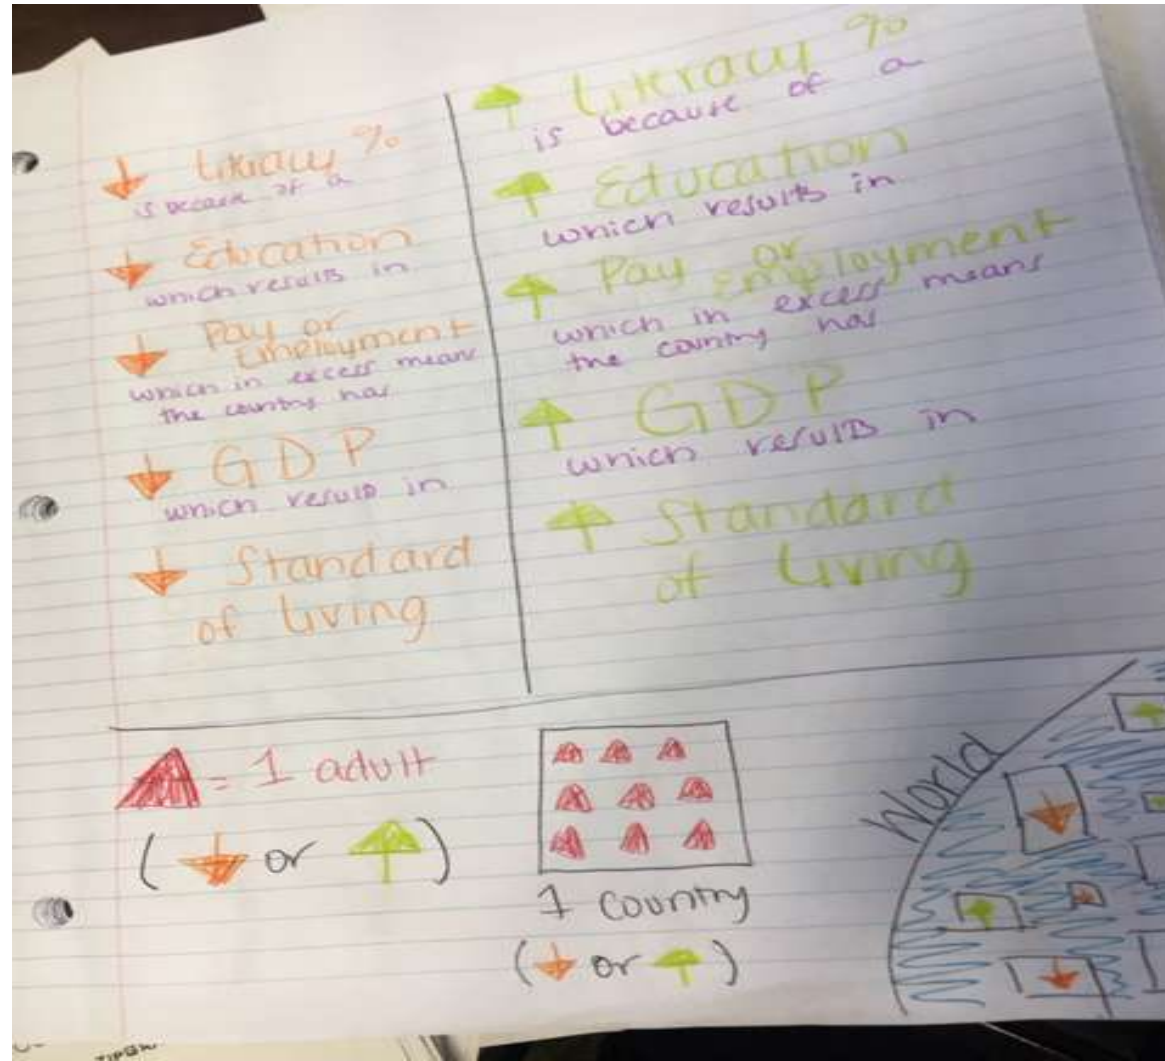 ↓ Literacy %
is because of a
↓ Education
which results in
↓ Pay or
Employment
which in excess means
the country has
↓ GDP
which results in
↓ Standard
of Living
↑ Literacy %
is because of a
↑ Education
which results in
↑ Pay or
employment
which in excess means
the country has
↑ GDP
which results in
↑ Standard
of Living
= 1 adult
(↓ or ↑)
1 country
(↓ or ↑)
World